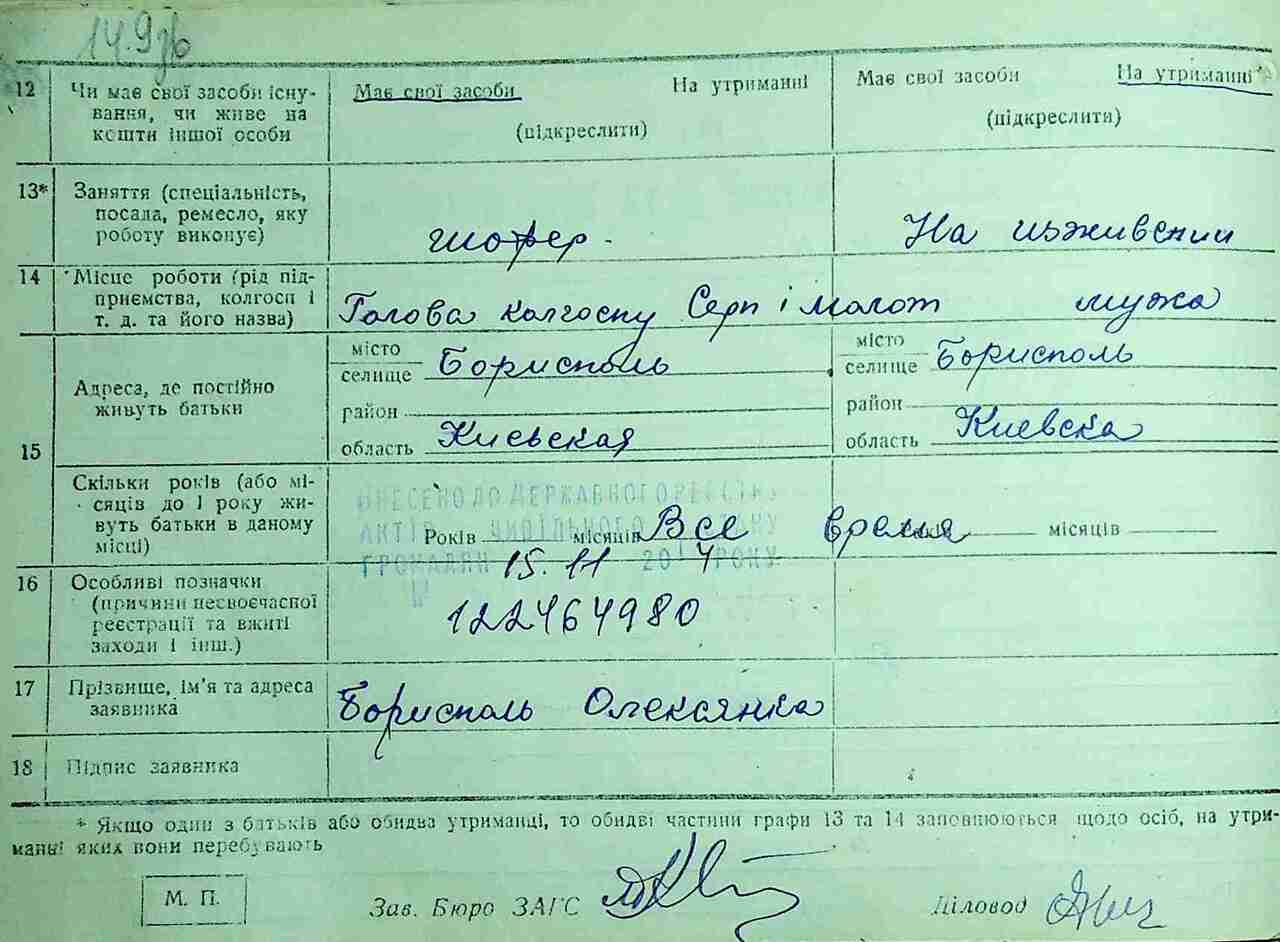 14.9
12 Чи має свої засоби існу-
вання, чи живе на
кошти іншої особи
Має свої засоби На утриманні
(підкреслити)
Має свої засоби На утриманні
(підкреслити)
13* Заняття (спеціальність,
посада, ремесло, яку
роботу виконує)
шофер. На иждивении
14 Місце роботи (рід під-
приємства, колгосп і
т. д. та його назва)
Голова колгоспу Серп і молот мужа
15 Адреса, де постійно
живуть батьки
місто
селище Борисполь
район
область Киевская
місто
селище Борисполь
район
область Киевска
Скільки років (або мі-
сяців до 1 року жи-
вуть батьки в даному
місці)
ВНЕСЕНО ДО ДЕРЖАВНОГО РЕЄСТРУ
АКТІВ ЦИВІЛЬНОГО СТАНУ
Років місяців Все время місяців
ГРОМАДЯН 15.11 2014 РОКУ
16 Особливі позначки
(причини несвоєчасної
реєстрації та вжиті
заходи і інш.)
122464980
17 Прізвище, ім’я та адреса
заявника
Борисполь
18 Підпис заявника
* Якщо один з батьків або обидва утриманці, то обидві частини графи 13 та 14 заповнюються щодо осіб, на утри-
манні яких вони перебувають
М. П. Зав. Бюро ЗАГС Діловод